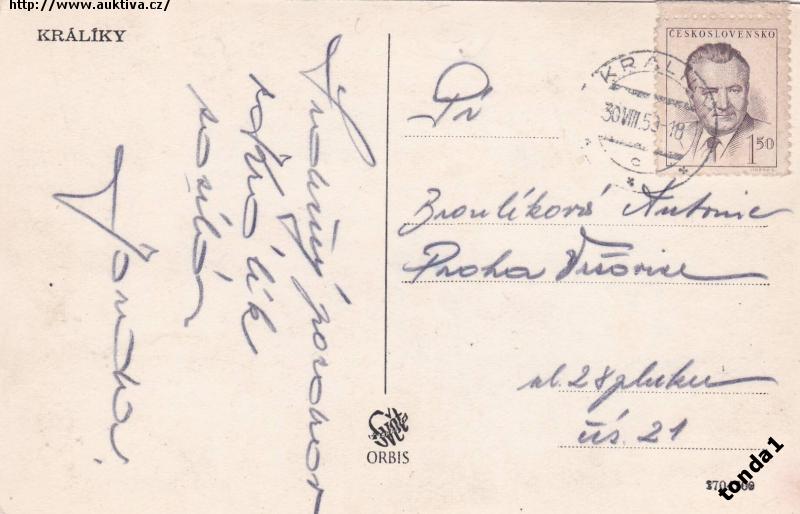 http://www.auktiva.cz/
KRÁLÍKY
Srdečný pozdrav
z Králík
posílá
ČESKOSLOVENSKO
1 50
KRÁLÍKY
30.VIII.53-18
c
Pí
Broulíková Antonie
Praha Vršovice
ul. 28 pluku
čís. 21
ORBIS
tonda1